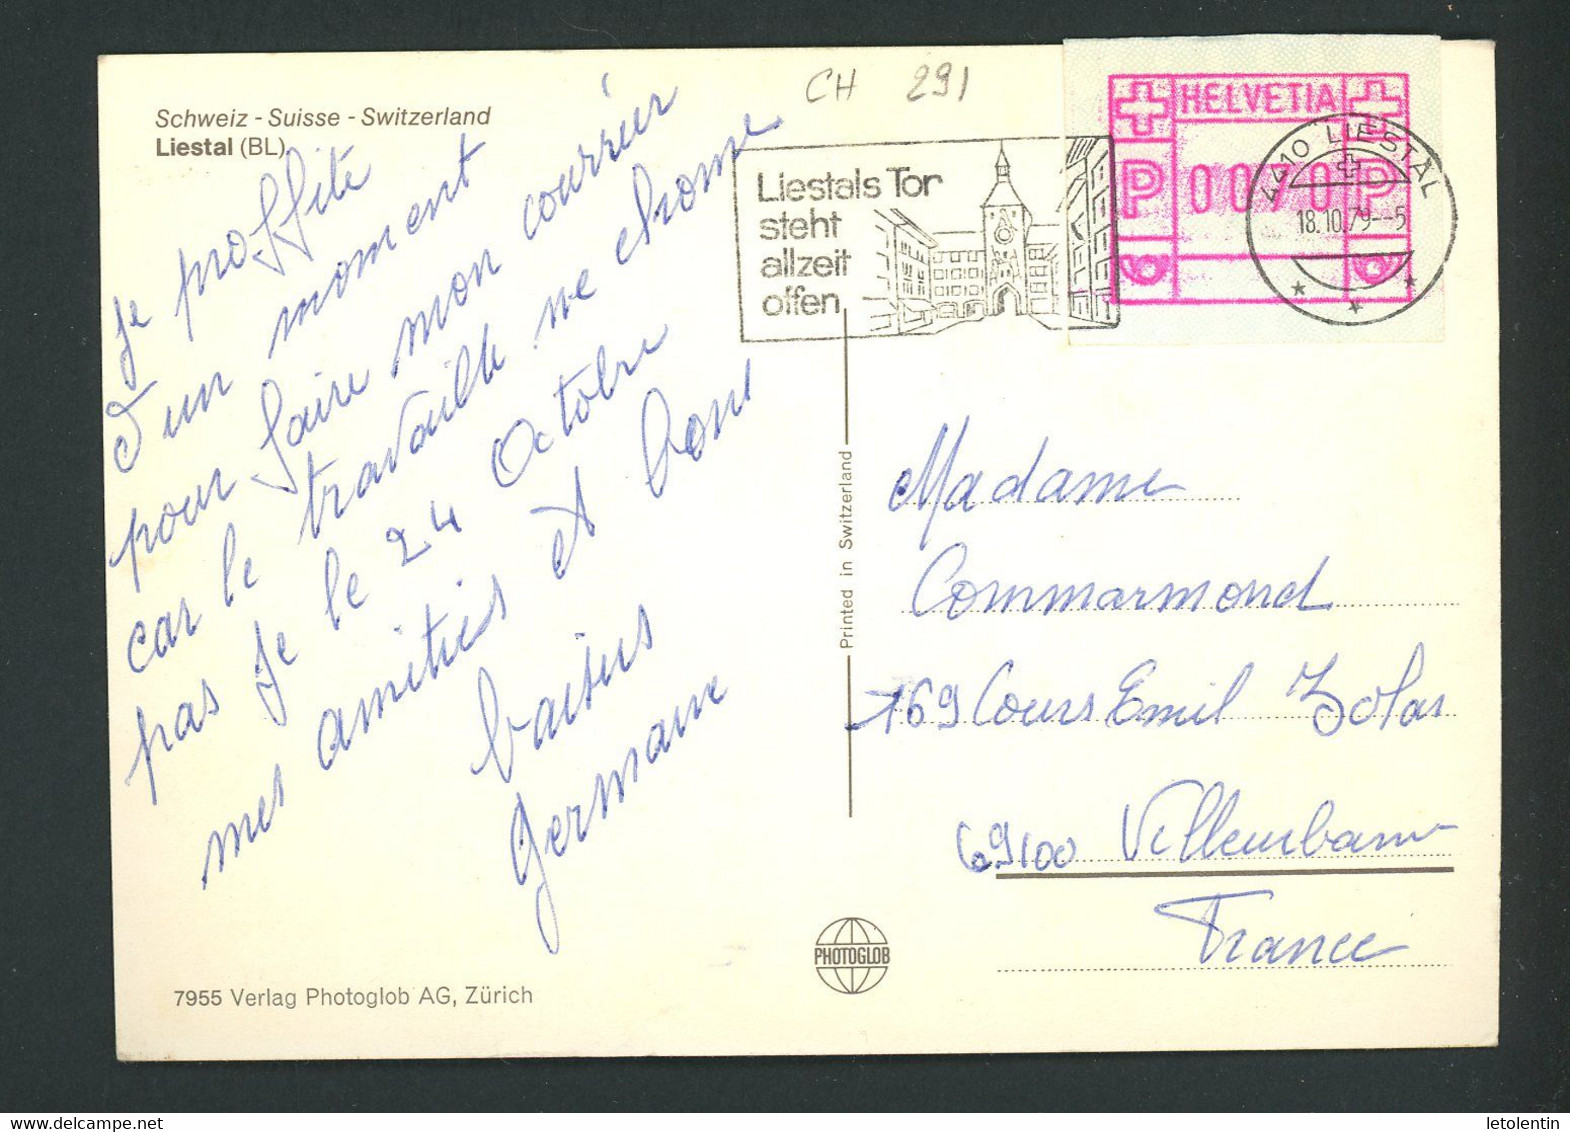 Schweiz - Suisse - Switzerland
Liestal (BL)
CH 291
Liestals Tor
steht
allzeit
offen
HELVETIA
P 0070 P
4410 LIESTAL
18.10.79--5
Je proffite
d'un moment
pour faire mon courrier
car le travaille ne chome
pas je le 24 Octobre
mes amitiés et bons
baisers
Germaine
Printed in Switzerland
Madame
Commarmond
169 Cours Emil Zolas
69100 Villeurbanne
France
PHOTOGLOB
7955 Verlag Photoglob AG, Zürich
letolentin